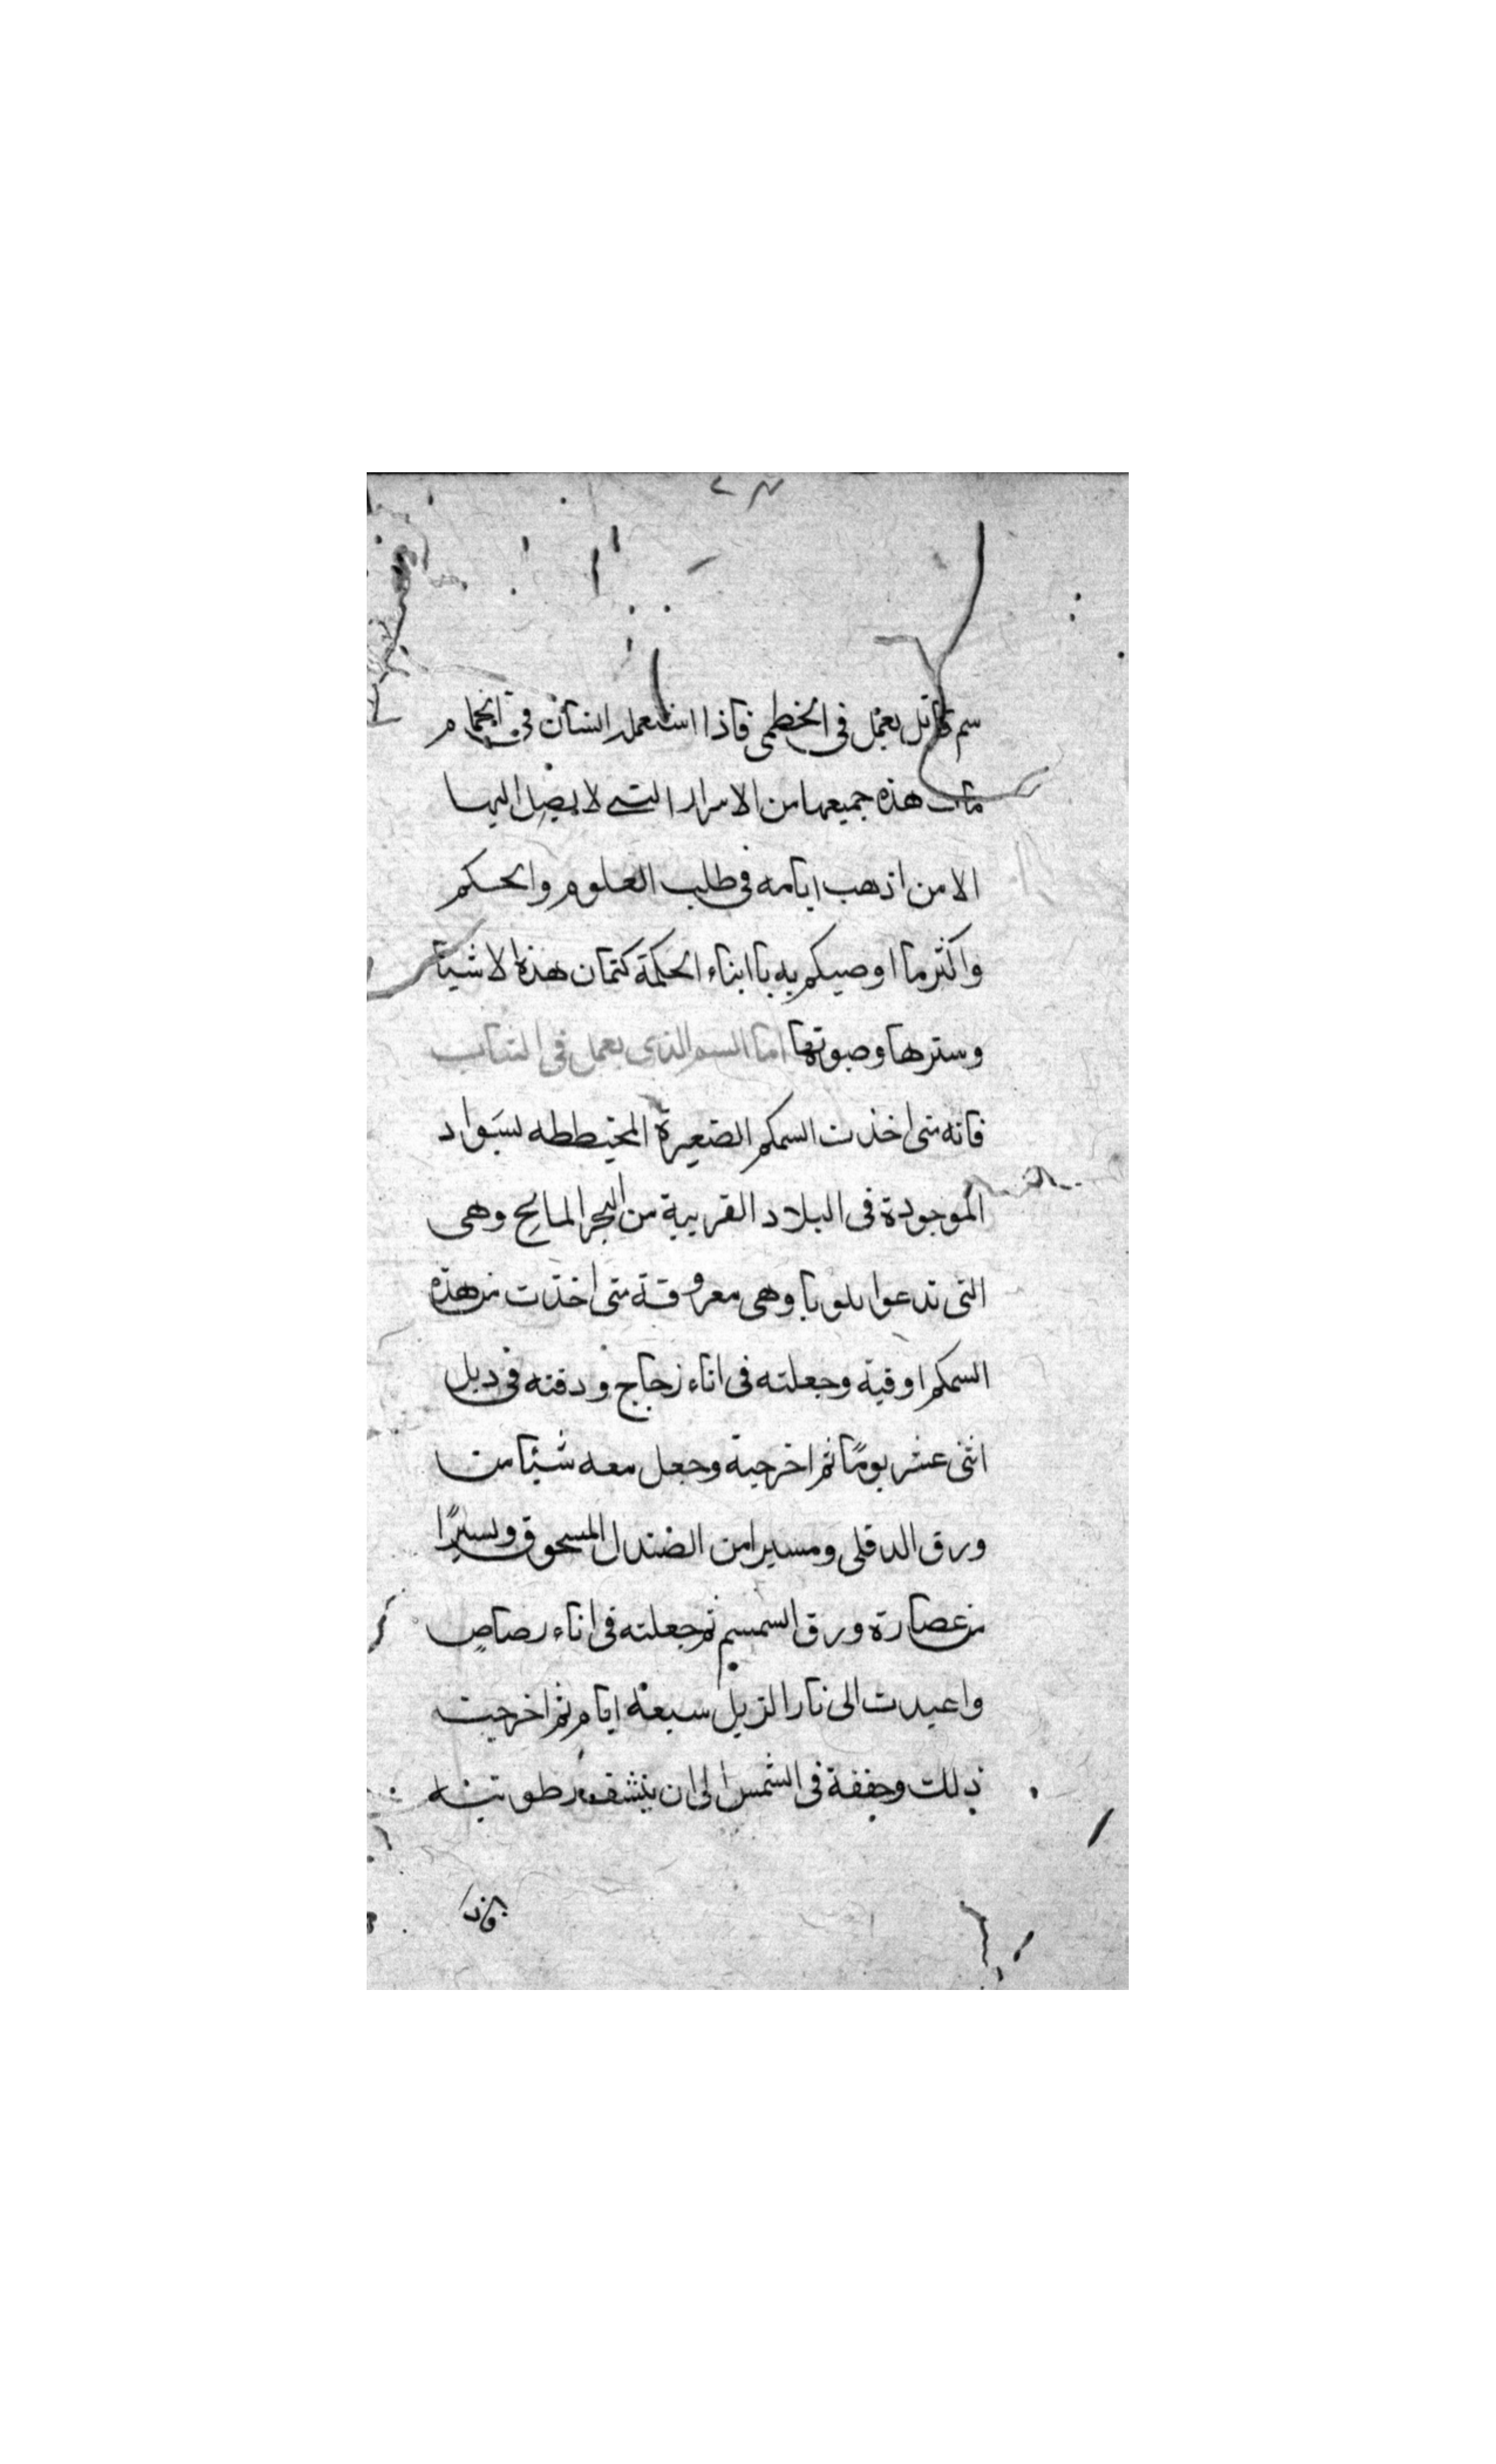 سم قاتل يعمل فى الخطمى فاذا استعمله انسان فى الحمام
مات هذه جميعها من الاسرار التى لا يصل اليها
الا من اذهب ايامه فى طلب العلوم والحكم
واكثر ما اوصيكم به يا ابناء الحكمة كتمان هذه الاشيا
وسترها وصونها اما السم الذى يعمل فى الثياب
فانه متى اخذت السمكه الصغيرة المخيططه بسواد
الموجودة فى البلاد القريبة من البحر المالح وهى
التى تدعوا بلوبا وهى معروفة متى اخذت من هذه
السمكه اوقية وجعلته فى اناء زجاج ودفنه فى دبل
اثنى عشر يومًا ثم اخرجية وجعل معه شيئا من
ورق الدفلى ومسيرا من الصندل المسحوق ويسيرًا
من عصارة ورق السمسم ثم جعلته فى اناء رصاص
واعيدت الى نار الزبل سبعة ايام ثم اخرجت
ذلك وجففة فى الشمس الى ان ينشف رطوبته
فاذا